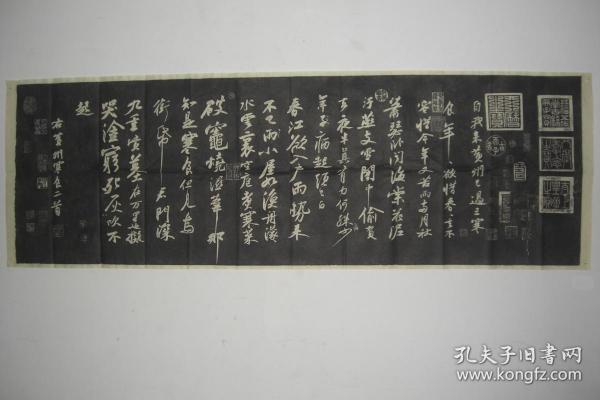 自我来黄州已过三寒
食年年欲惜春春去不
容惜今年又苦雨两月秋
萧瑟卧闻海棠花泥
污燕支雪闇中偷负
去夜半真有力何殊少
年子病起须已白
春江欲入户雨势来
不已雨小屋如渔舟濛濛
水云里空庖煮寒菜
破竈烧湿苇那
知是寒食但见乌
衔帋君门深
九重坟墓在万里也拟
哭塗穷死灰吹不
起
右黄州寒食二首
孔夫子旧书网
www.kongfz.com